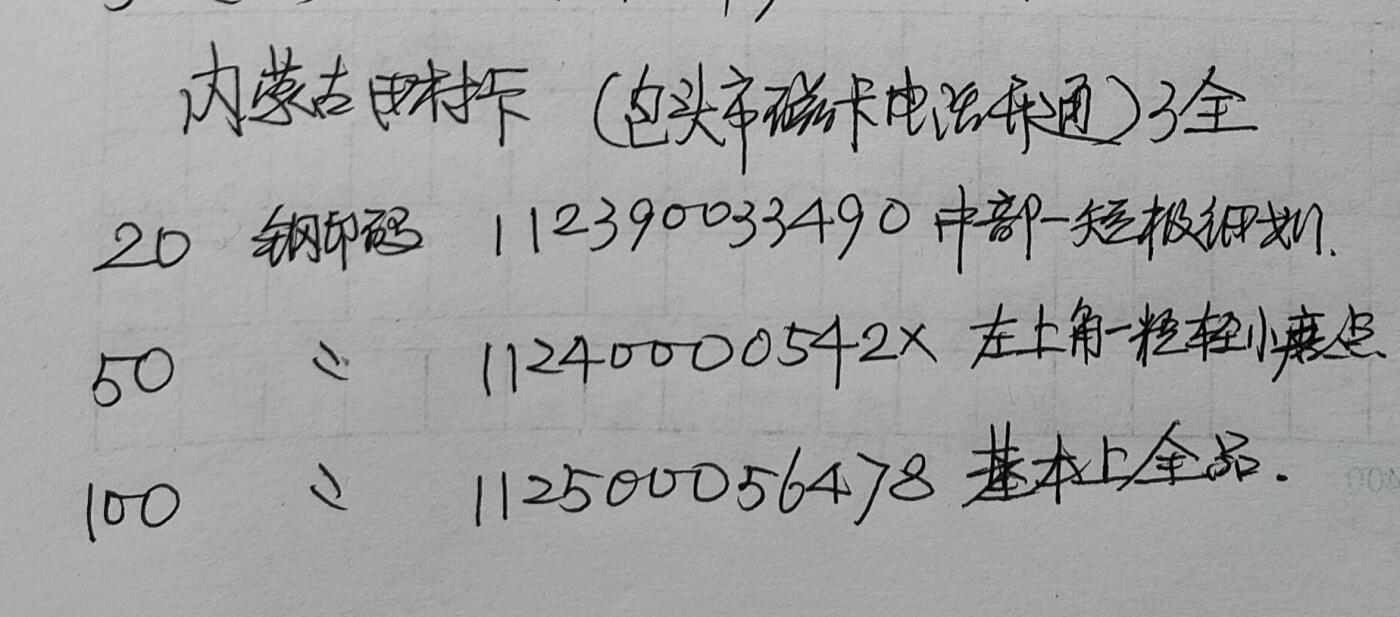 内蒙古田村卡 (包头市磁卡电话开通) 3全
20 钢印码 112390033490 中部一短极细划.
50 〃 11240000542X 左上角一粒轻小磨点.
100 〃 112500056478 基本上全品.